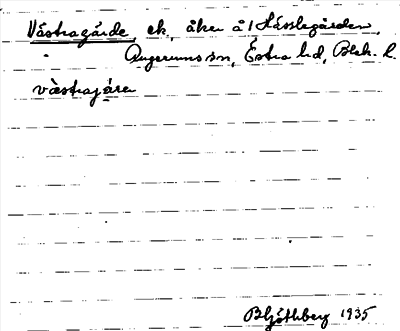 Västragärde, ek, åker å 1 Hässlegården,
Augerums sn, Östra hd, Blek. l.
västrajäre
B Götlberg 1935